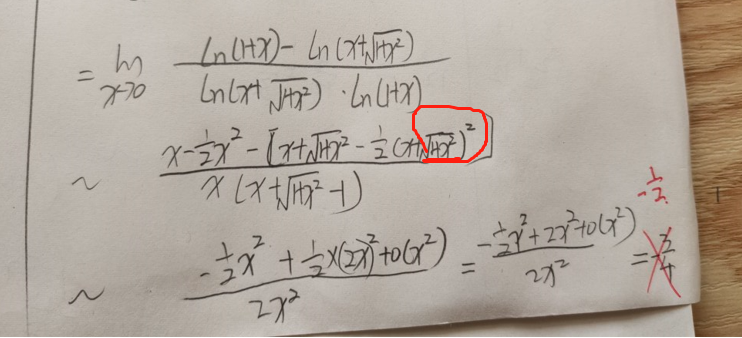 = lim x→0 (ln(1+x) - ln(x+√(1+x²))) / (ln(x+√(1+x²)) · ln(1+x))
~ (x - 1/2 x² - [x+√(1+x²) - 1/2 (x+√(1+x²))²]) / (x(x+√(1+x²) - 1))
~ (-1/2 x² + 1/2 × (2x)² + o(x²)) / (2x²) = (-1/2 x² + 2x² + o(x²)) / (2x²) = 3/4 -1/2